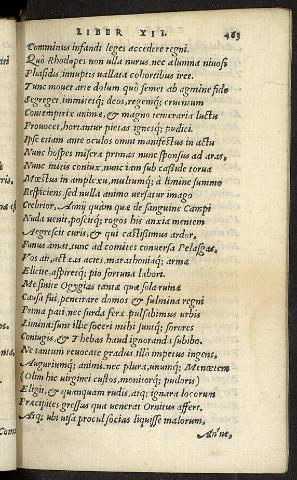 LIBER XII. 483
Comminus infandi leges accedere regni.
Quò Rhodopes non ulla nurus, nec alumna niuosi
Phasidis, innuptis uallata cohortibus iret.
Tunc mouet arte dolum quò semet ab agmine fido
Segreget, immitesq; deos, regemq; cruentum
Contemptrix animæ, & magno temeraria luctu
Prouocet, hortantur pietas ignesq; pudici.
Ipse etiam ante oculos omni manifestus in actu
Nunc hospes miseræ primas nunc sponsus ad aras,
Nunc mitis coniux, nunc iam sub casside torua
Mœstus in amplexu, multumq; à limine summo
Respiciens, sed nulla animo uersatur imago
Crebrior, Aonij quàm quæ de sanguine Campi
Nuda uenit, poscitq; rogos his anxia mentem
Aegrescit curis, & qui castissimus ardor,
Funus amat, tunc ad comites conuersa Pelasgas,
Vos ait, acteas acies, marathoniaq; arma
Elicite, aspiretq; pio fortuna labori.
Me sinite Ogygias tantæ quæ sola ruinæ
Causa fui, penetrare domos & fulmina regni
Prima pati, nec surda feræ pulsabimus urbis
Limina: sunt illic soceri mihi suntq; sorores
Coniugis, & Thebas haud ignoranda subibo.
Ne tantum reuocate gradus, illò impetus ingens,
Auguriumq; animi, nec plura, unumq; Menœtem
(Olim hic uirginei custos, monitorq; pudoris)
Eligit, & quanquam rudis, atq; ignara locorum
Præcipites gressus qua uenerat Ornitus affert.
Atq; ubi uisa procul socias liquisse malorum,
An'ne,